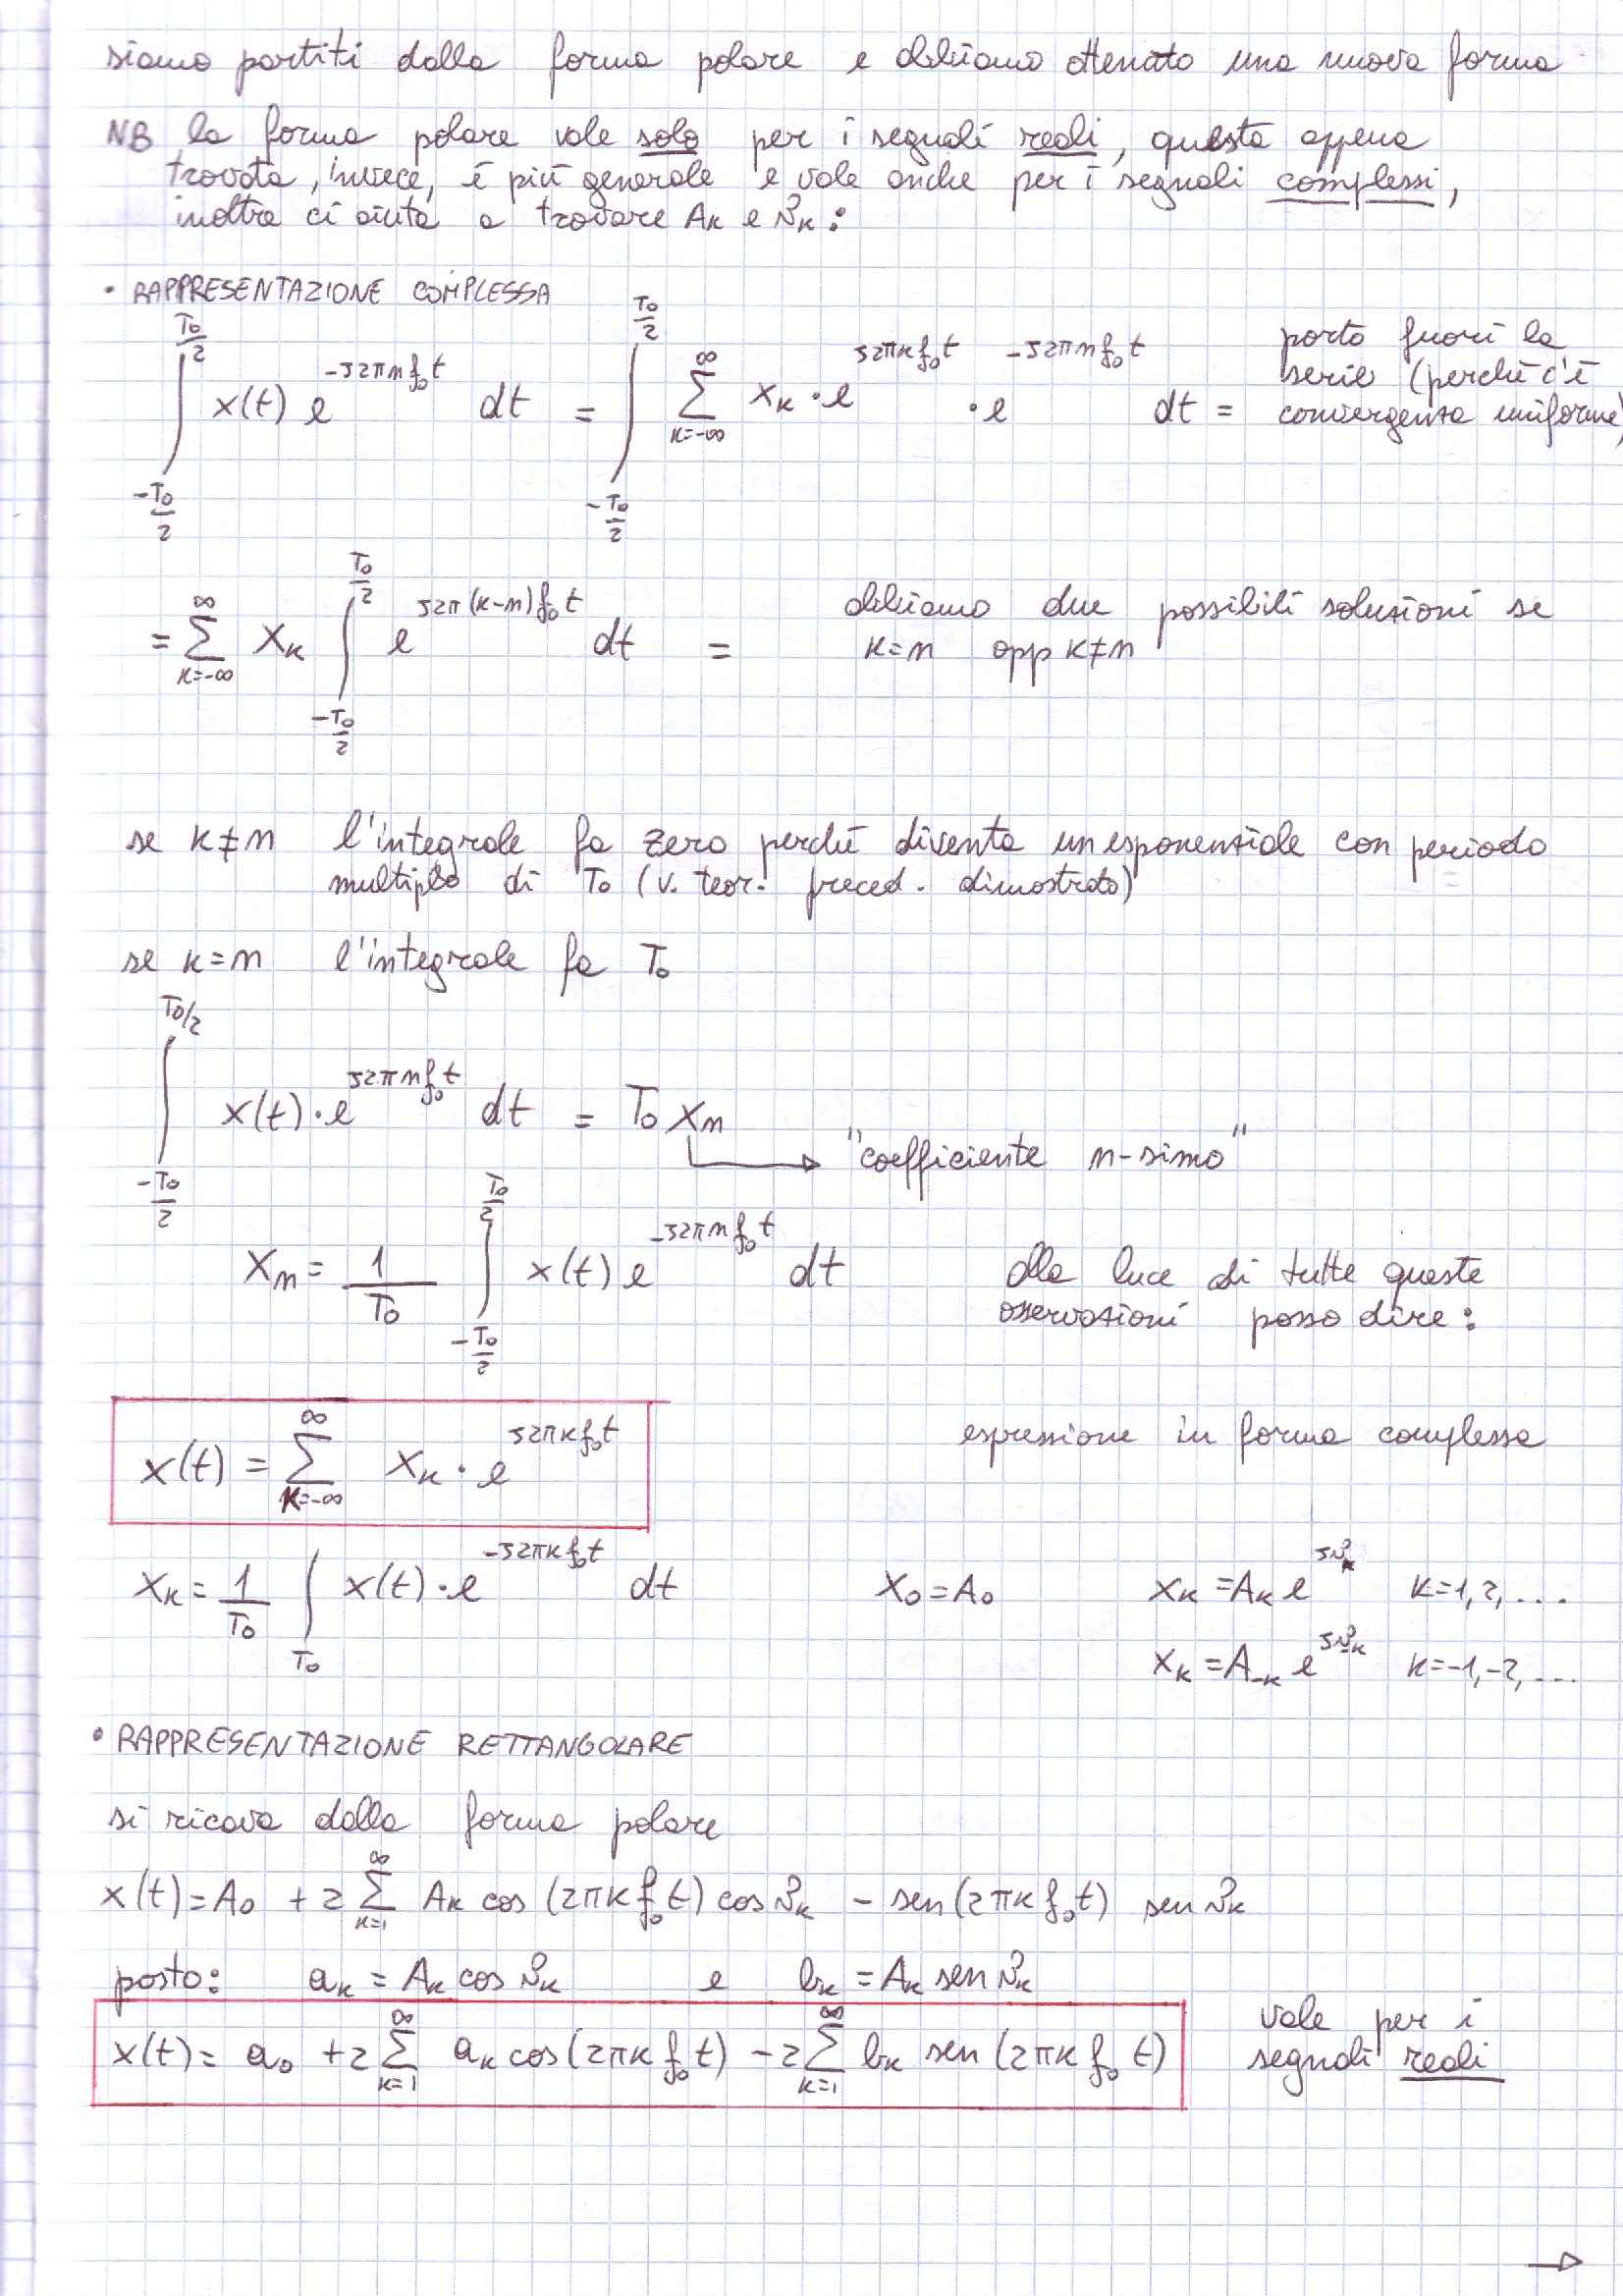 siamo partiti dalla forma polare e abbiamo ottenuto una nuova forma
NB la forma polare vale solo per i segnali reali, questa appena
trovata, invece, è più generale e vale anche per i segnali complessi,
inoltre ci aiuta a trovare Aₖ e ϑₖ:
• RAPPRESENTAZIONE COMPLESSA
∫_{-T₀/2}^{T₀/2} x(t) e^{-J2πnf₀t} dt = ∫_{-T₀/2}^{T₀/2} ∑_{k=-∞}^{∞} Xₖ · e^{J2πkf₀t} · e^{-J2πnf₀t} dt = porto fuori la
serie (perché c'è
convergenza uniforme)
= ∑_{k=-∞}^{∞} Xₖ ∫_{-T₀/2}^{T₀/2} e^{J2π(k-n)f₀t} dt = abbiamo due possibili soluzioni se
k=n opp k≠n
se k≠n l'integrale fa zero perché diventa un esponenziale con periodo
multiplo di T₀ (v. teor. preced. dimostrato)
se k=n l'integrale fa T₀
∫_{-T₀/2}^{T₀/2} x(t) · e^{J2πnf₀t} dt = T₀ Xₙ
"coefficiente n-simo"
Xₙ = 1/T₀ ∫_{-T₀/2}^{T₀/2} x(t) e^{-J2πnf₀t} dt alla luce di tutte queste
osservazioni posso dire:
x(t) = ∑_{k=-∞}^{∞} Xₖ · e^{J2πkf₀t} espressione in forma complessa
Xₖ = 1/T₀ ∫_{T₀} x(t) · e^{-J2πkf₀t} dt X₀ = A₀ Xₖ = Aₖ e^{Jϑₖ} k=1,2,...
Xₖ = A₋ₖ e^{Jϑ₋ₖ} k=-1,-2,...
• RAPPRESENTAZIONE RETTANGOLARE
si ricava dalla forma polare
x(t) = A₀ + 2 ∑_{k=1}^{∞} Aₖ cos (2πk f₀t) cos ϑₖ - sen (2πk f₀t) sen ϑₖ
posto: aₖ = Aₖ cos ϑₖ e bₖ = Aₖ sen ϑₖ
x(t) = a₀ + 2 ∑_{k=1}^{∞} aₖ cos (2πk f₀t) - 2 ∑_{k=1}^{∞} bₖ sen (2πk f₀ t) vale per i
segnali reali